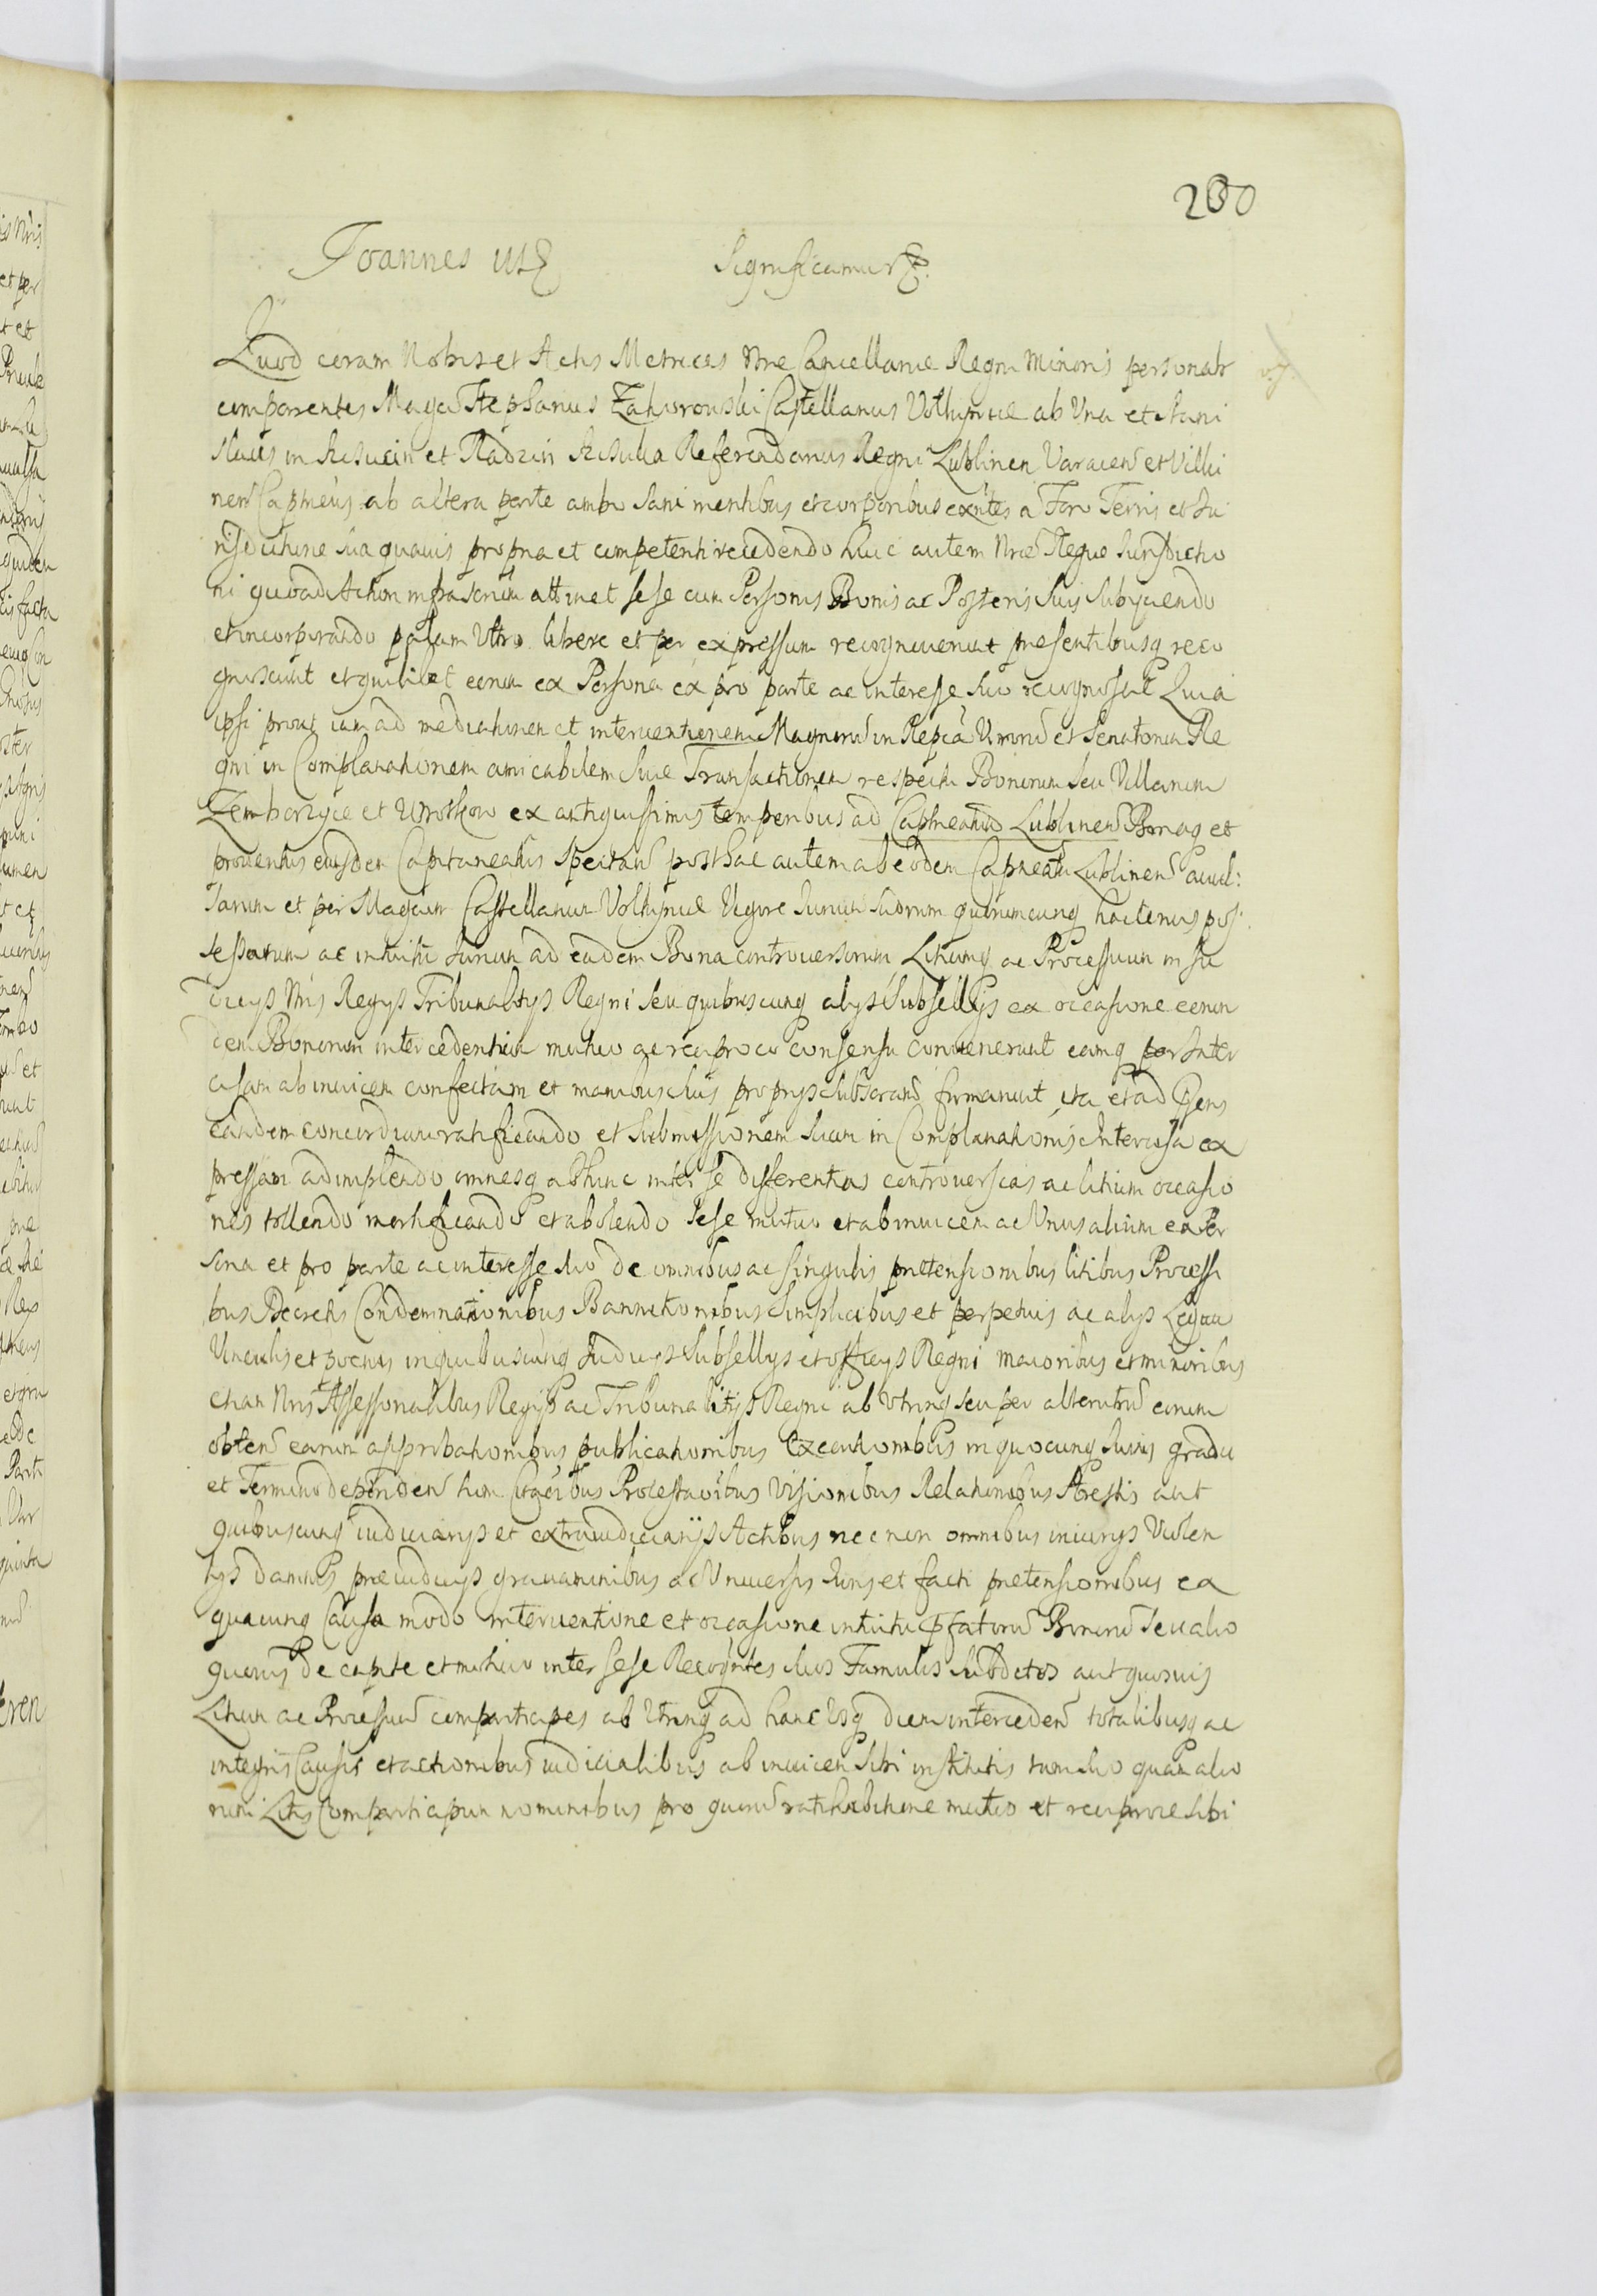 200
Joannes III
Significamus
Quod coram Nobis et Actis Metrices Nre Cancellariæ Regni Minoris personalr
comparentes Magci Stephanus Zahorowski Castellanus Volhyniæ ab Una et Stani
slaus in et Radzin Referendarius Regni Lublinen Varacien et
nen Capneus ab altera parte ambo sani mentibus et corporibus exntes a Foro Terris et Ju
risdictione sua quavis propria et competenti recedendo huic autem Nræ Regiæ Jurisdictio
ni quoad Actum infrascrium attinet sese cum Personis Bonis ac Posteris suis subijciendo
et incorporando palam Ultro libere et per expressum recognoverunt presentibusq reco
gnoscunt et quilibet eorum ex Persona ex pro parte ac interesse suo recognoscit Quia
ipsi prout iam ad mediationem et interventionem Magnorum in Repca Virorum et Senatorum Re
gni in Complanationem amicabilem sive Transactionem respectu Bonorum seu Villarum
Zemborzyce et Wrotkow ex antiquissimis temporibus ad Capneatum Lublinen Bonaq et
proventus eiusdem Capitaneatus spectan posthac autem ab eodem Capneatu Lublinen avul:
sarum et per Magcum Castellanum Volhyniæ Vigore Jurium suorum quorumcunq hactenus pos
sessarum ac intuitu Jurium ad eadem Bona controversorum Litiumq ac Processuum in Ju
dicijs Nris Regijs Tribunalitijs Regni seu quibuscunq alijs Subsellijs ex occasione eorun
dem Bonorum intercedentium mutuo ac reciproco consensu convenerunt eamq per Inter
cisam ab invicem confectam et manibus suis proprijs subscrand firmarunt ita et ad Psens
eandem concordiam ratificando et submissionem suam in Complanationis Intercisa ex
pressam adimplendo omnesq abhinc inter se differentias controversias ac litium occasio
nes tollendo mortificando et abolendo sese mutuo et ab invicem ac Unus alium ex Per
sona et pro parte ac interesse suo de omnibus ac singulis prætensionibus litibus Processi
bus Decretis Condemnationibus Bannitionibus simplicibus et perpetuis ac alijs Legum
Vinculis et poenis in quibuscunq Judicijs Subsellijs et officijs Regni maioribus et minoribus
etiam Nris Assessorialibus Regijs ac Tribunalitijs Regni ab Utrinq seu per alterutrum eorum
obten earum approbationibus publicationibus Executionibus in quocunq Juris gradu
et Termino dependentium Citaoibus Protestaoibus Visionibus Relationibus Arestis aut
quibuscunq iudiciarijs et extraiudiciarijs Actibus nec non omnibus iniurijs Violen
tijs damnis præiudicijs gravaminibus ac Universis Juris et facti prætensionibus ex
quacunq Causa modo interventione et occasione intuitu pfatorum Bonorum seu alio
quovis de capite et mutuo inter sese Recogntes suos Famulos subditos aut quosvis
Litium ac Processuum comparticipes ab Utrinq ad hanc Usq diem interceden totalibusq ac
integris Causis et actionibus iudicialibus ab invicem sibi institutis tum suo quam alio
rum Litis Comparticipum nominibus pro quorum ratihabitione mutuo et reciproce sibi